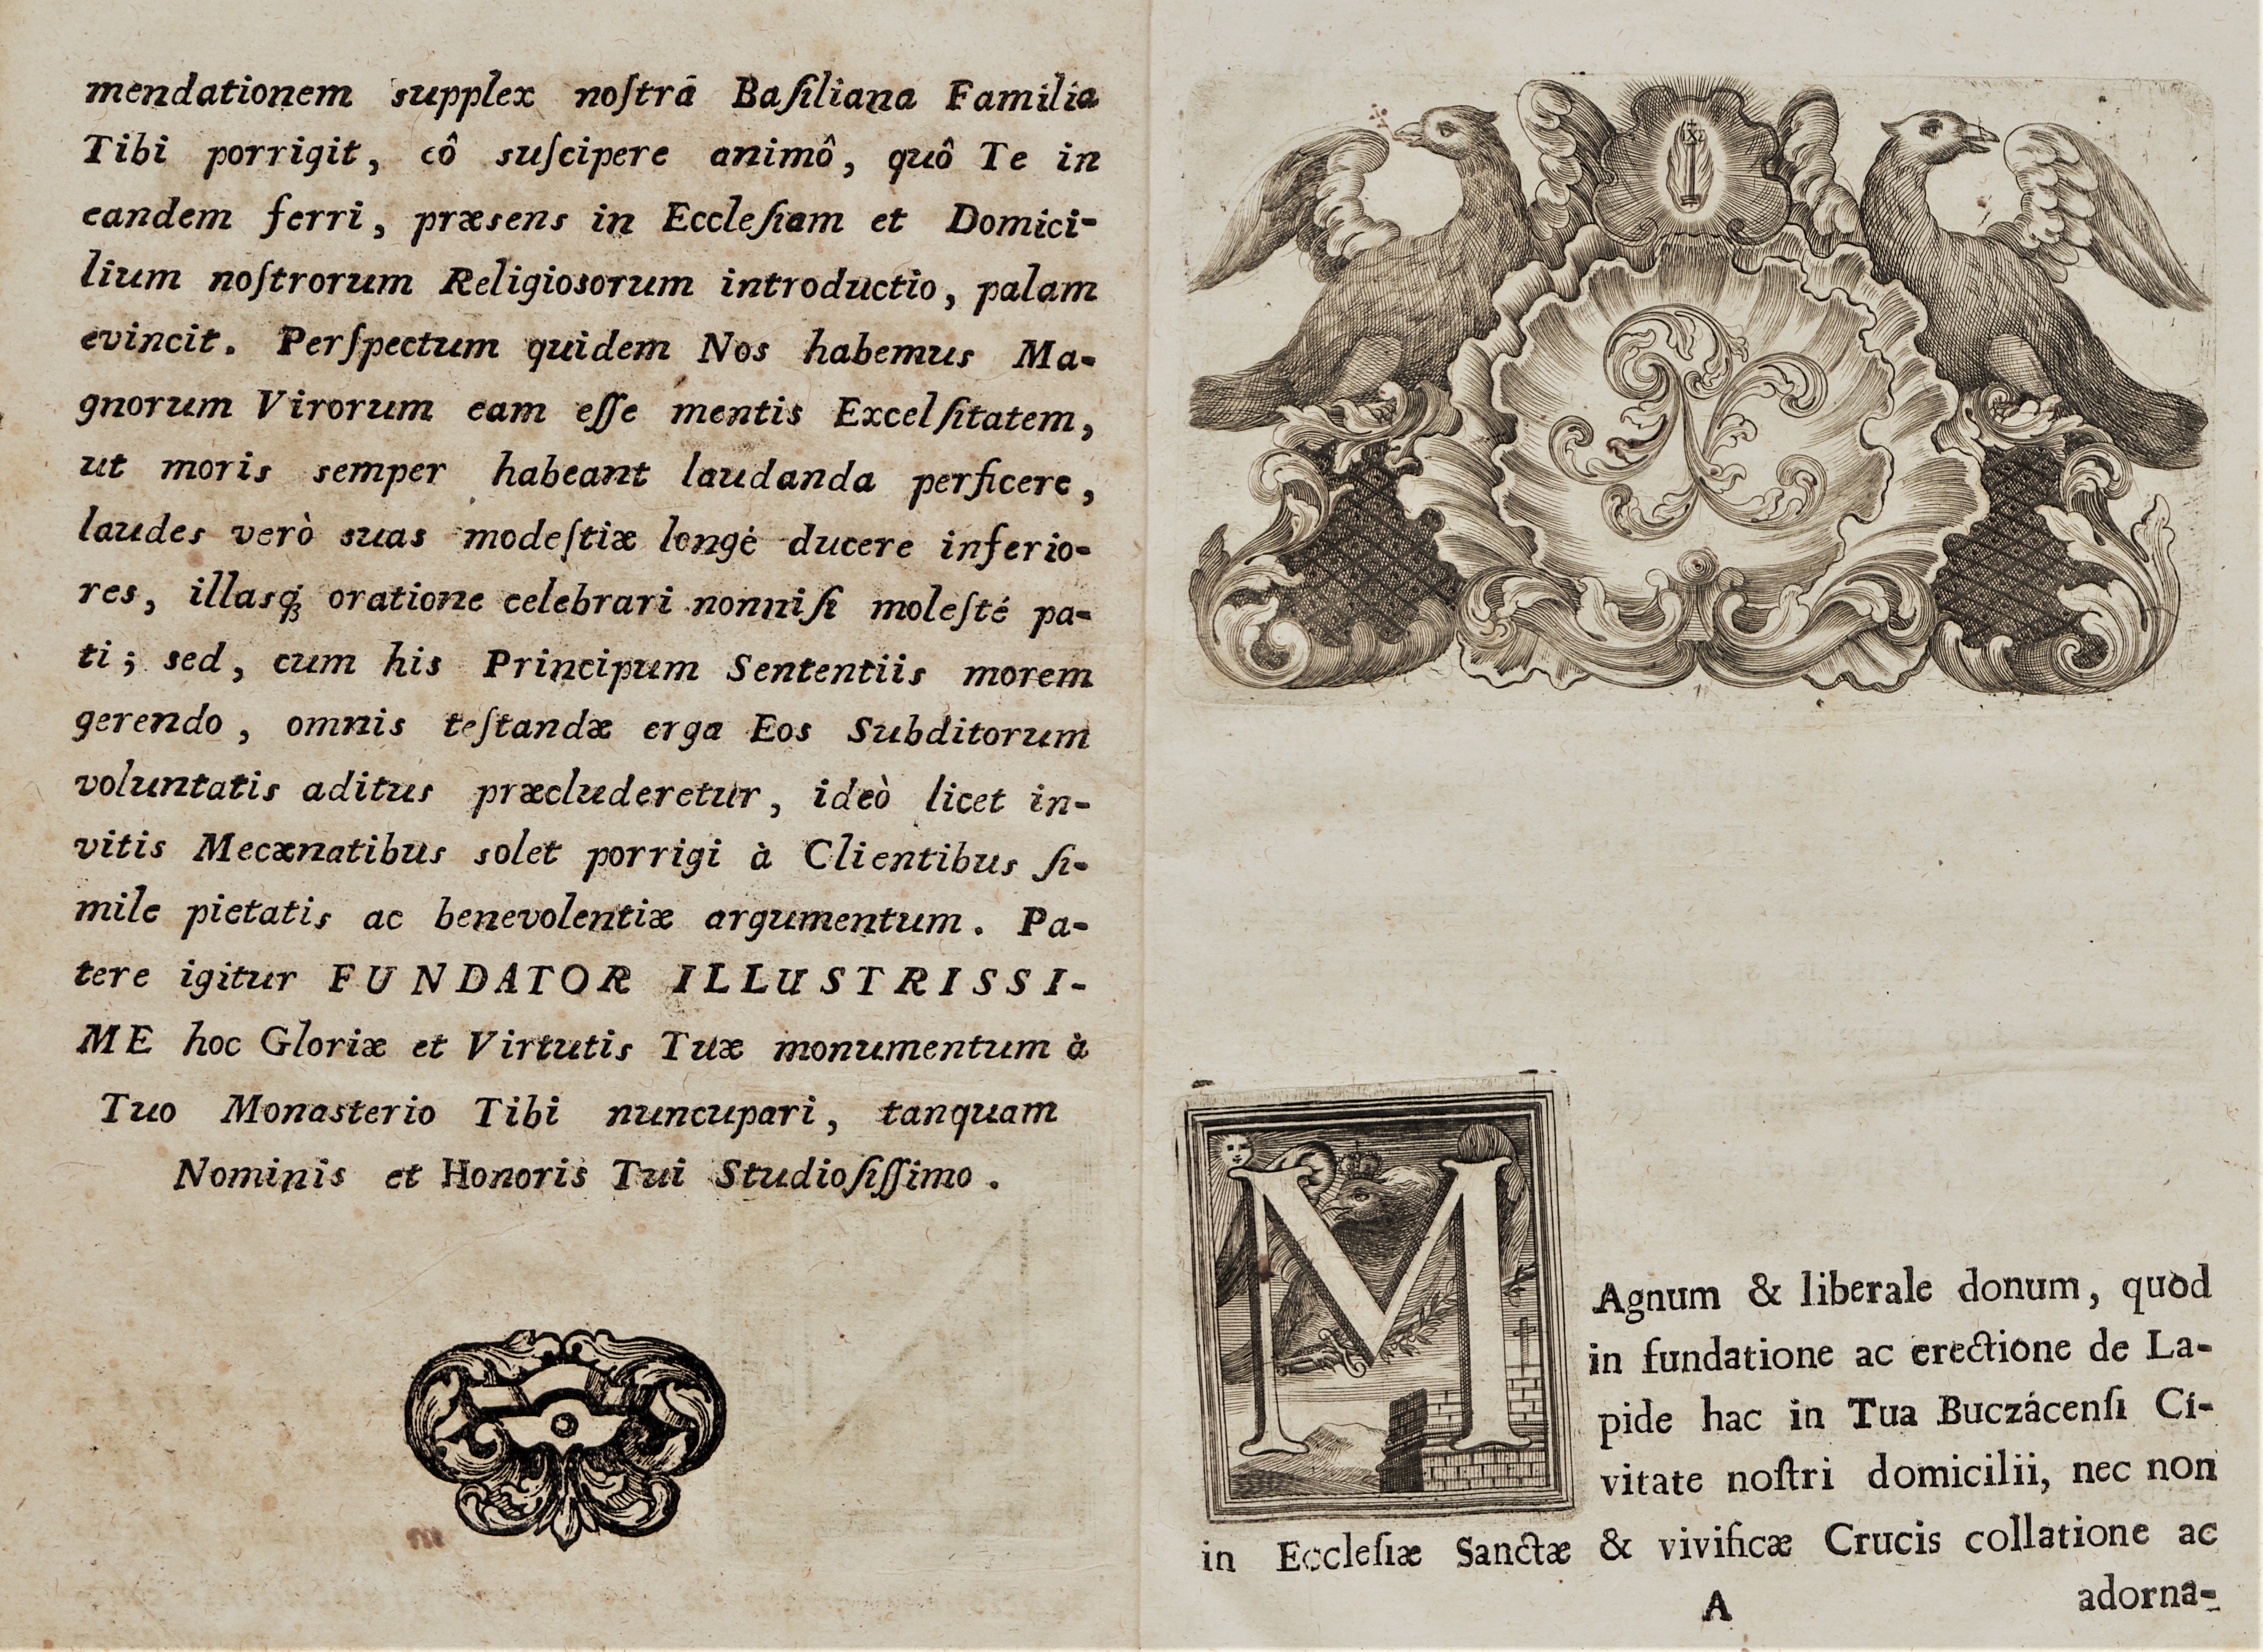 mendationem supplex noſtrâ Baſiliana Familia
Tibi porrigit, eô suſcipere animô, quô Te in
eandem ferri, præsens in Eccleſiam et Domici-
lium noſtrorum Religiosorum introductio, palam
evincit. Perſpectum quidem Nos habemus Ma-
gnorum Virorum eam eſſe mentis Excelſitatem,
ut moris semper habeant laudanda perficere,
laudes verò suas modeſtiæ longè ducere inferio-
res, illasq́; oratione celebrari nonniſi moleſté pa-
ti; sed, cum his Principum Sententiis morem
gerendo, omnis teſtandæ erga Eos Subditorum
voluntatis aditus præcluderetur, ideò licet in-
vitis Mecænatibus solet porrigi à Clientibus ſi-
mile pietatis ac benevolentiæ argumentum. Pa-
tere igitur FUNDATOR ILLUSTRISSI-
ME hoc Gloriæ et Virtutis Tuæ monumentum à
Tuo Monasterio Tibi nuncupari, tanquam
Nominis et Honoris Tui Studioſiſſimo.
MAgnum & liberale donum, quod
in fundatione ac erectione de La-
pide hac in Tua Buczácenſi Ci-
vitate noſtri domicilii, nec non
in Eccleſiæ Sanctæ & vivificæ Crucis collatione ac
A adorna-